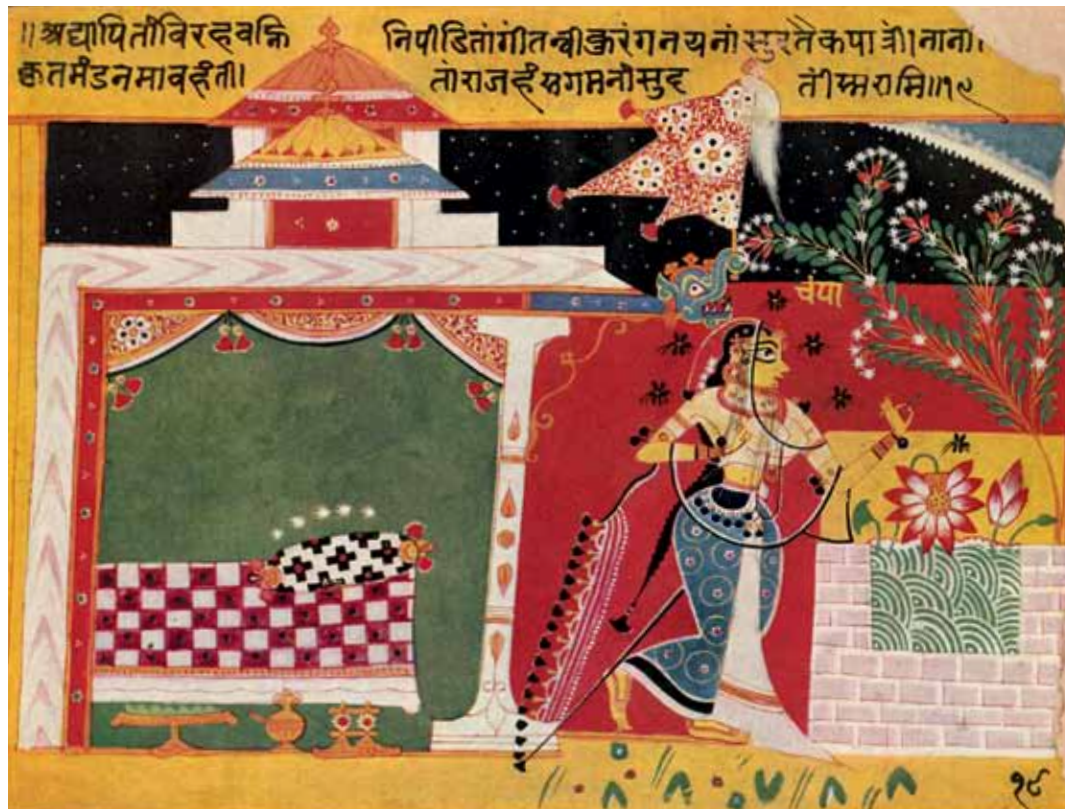 ॥अद्यापितांविरहवह्नि निपीडितांगीतन्वीकुरंगनयनांसुरतैकपात्री।नाना।
कृतमंडनमावहंती। तांराजहंसगमनांसुद तींस्मरामि॥१९
चंपा
१८